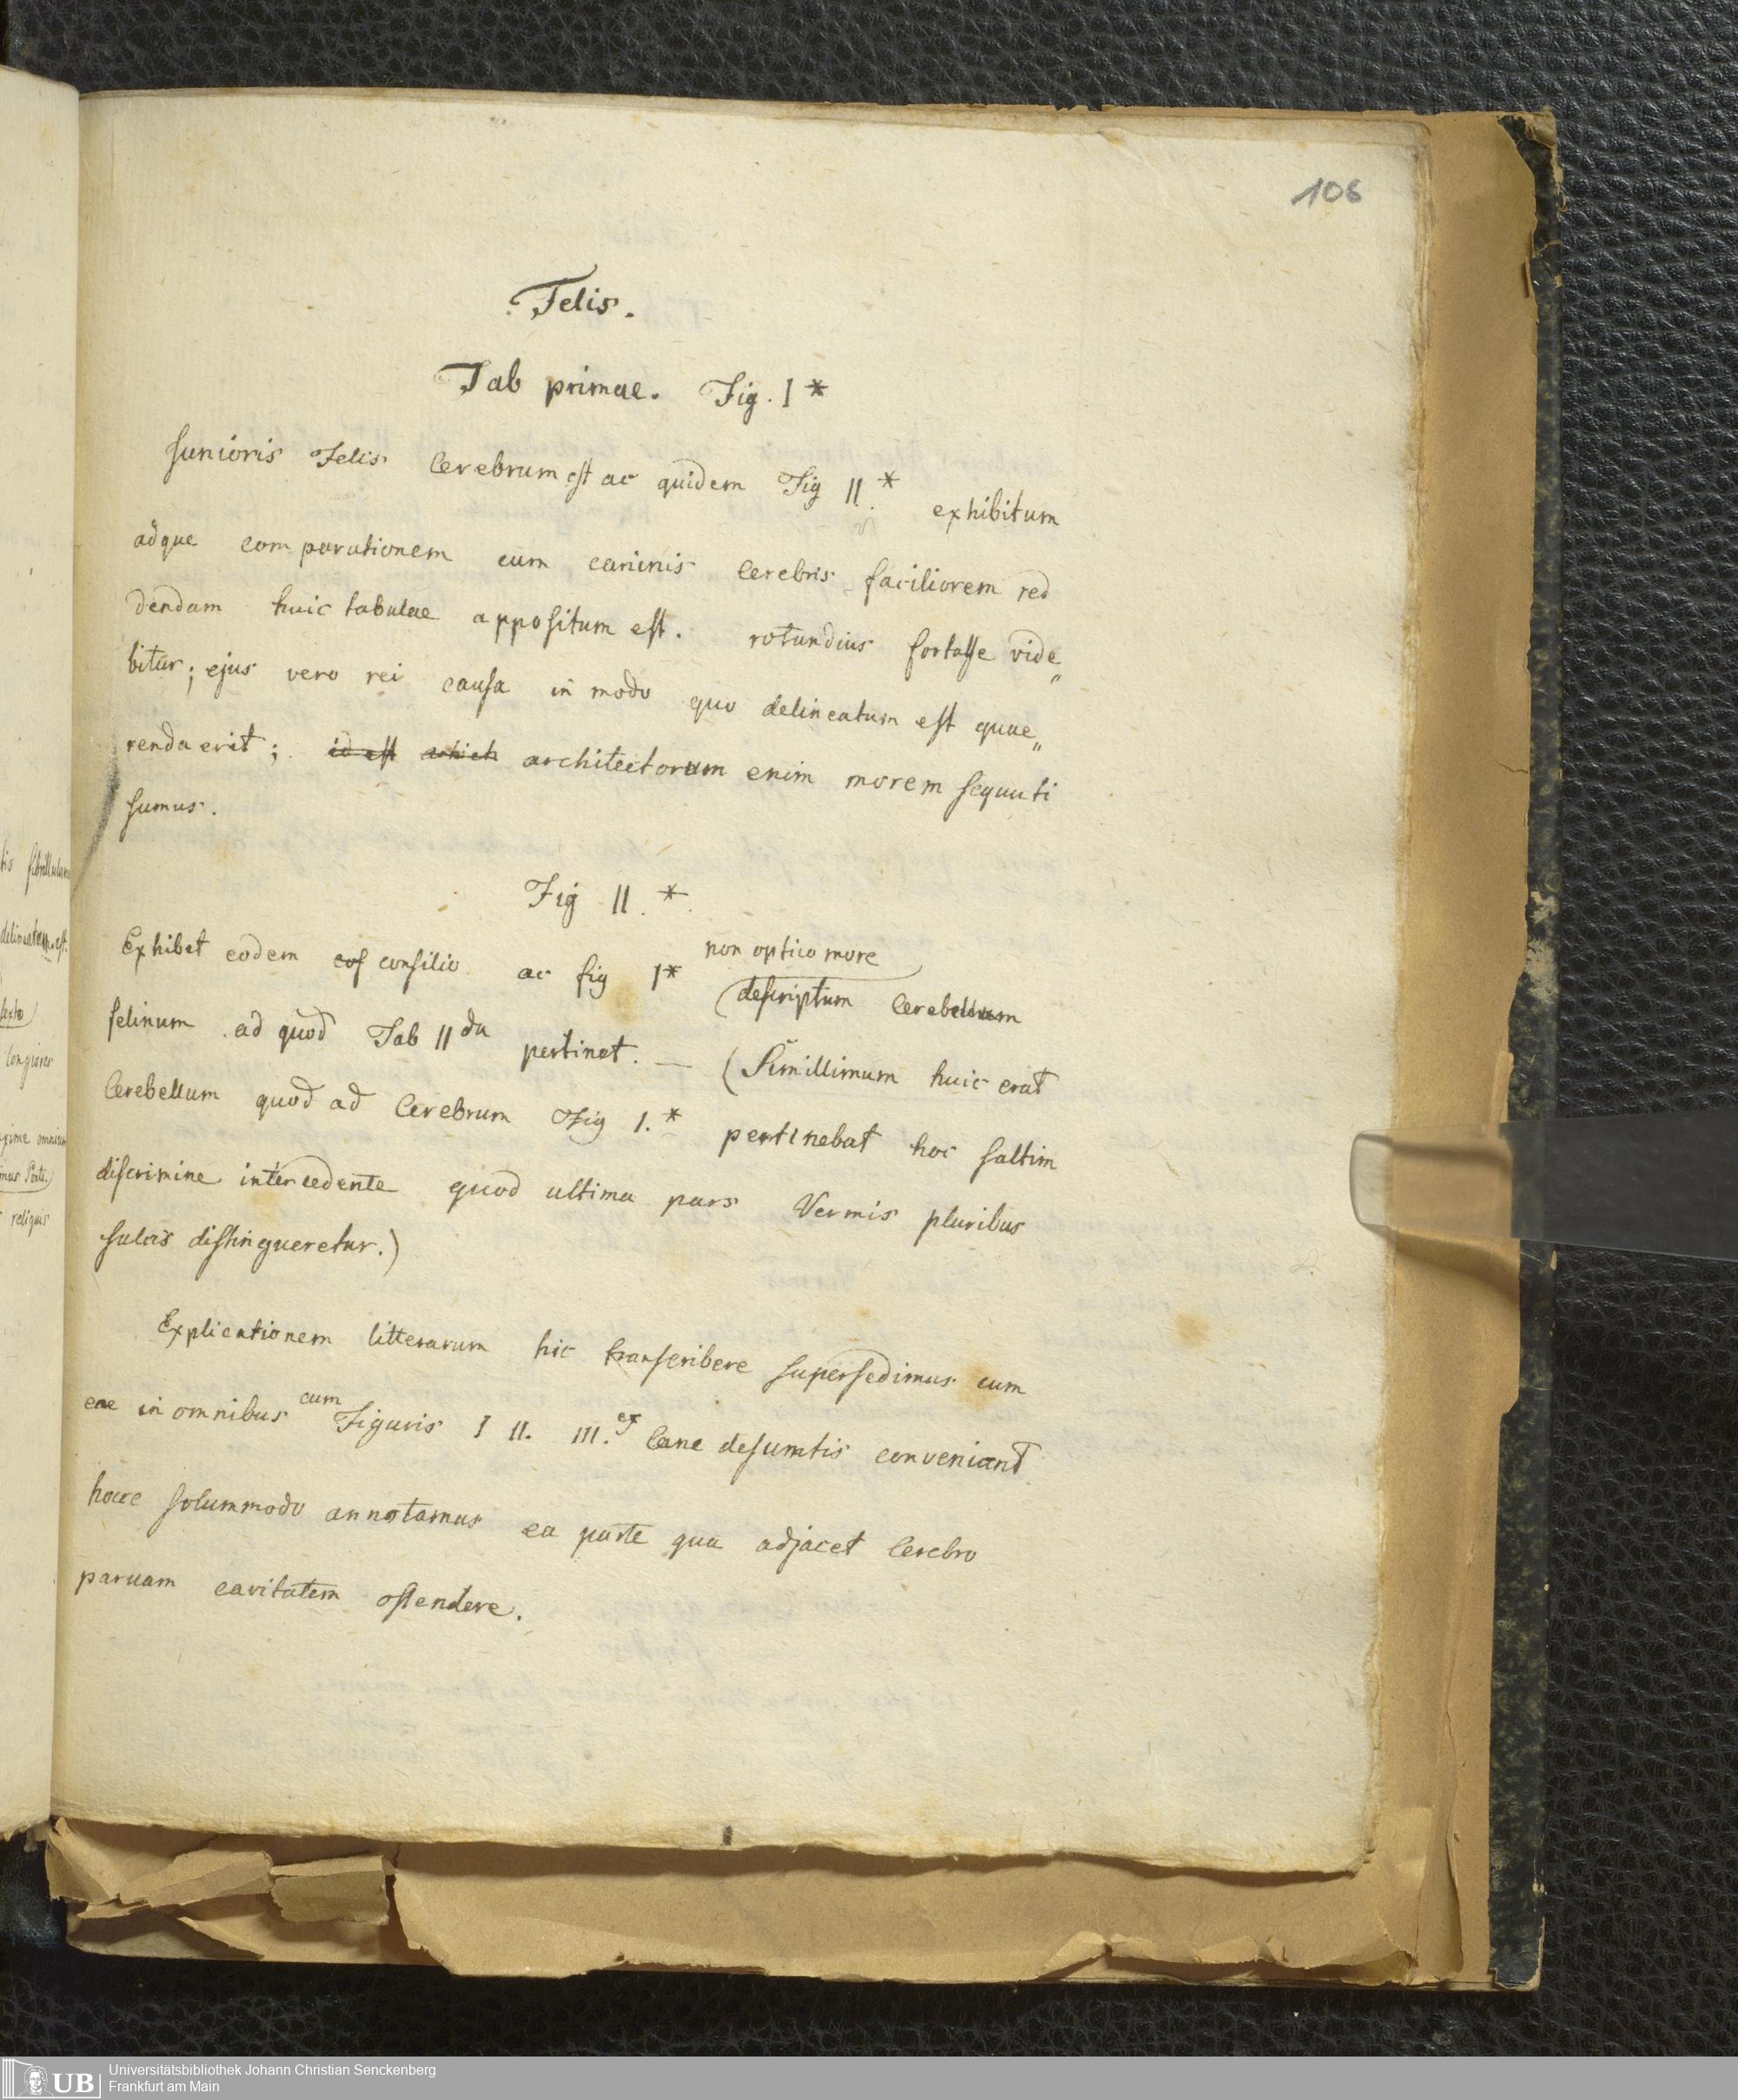 106
Felis.
Tab primae. Fig. I *
Junioris Felis Cerebrum est ac quidem Fig II. * exhibitum
adque comparationem cum caninis Cerebris faciliorem red
dendam huic tabulae appositum est. rotundius fortasse vide„
bitur; ejus vero rei causa in modo quo delineatum est quae„
renda erit; id est archich architectorum enim morem sequuti
sumus.
Fig II. *.
non optico more
Exhibet eodem cos consilio ac fig I* (descriptum Cerebellum
felinum ad quod Tab II da pertinet. — (Simillimum huic erat
Cerebellum quod ad Cerebrum Fig I. * pertinebat hoc saltim
discrimine intercedente quod ultima pars Vermis pluribus
sulcis distingueretur.)
Explicationem litterarum hic transcribere supersedimus cum
eae in omnibus cum Figuris I II. III. ex Cane desumtis conveniant
hocce solummodo annotamus ea parte qua adjacet Cerebro
parvam cavitatem ostendere.
tis fibrillarum
delineatum est.
sexto)
longiores
maxime omnium
reliquis
UB
Universitätsbibliothek Johann Christian Senckenberg
Frankfurt am Main